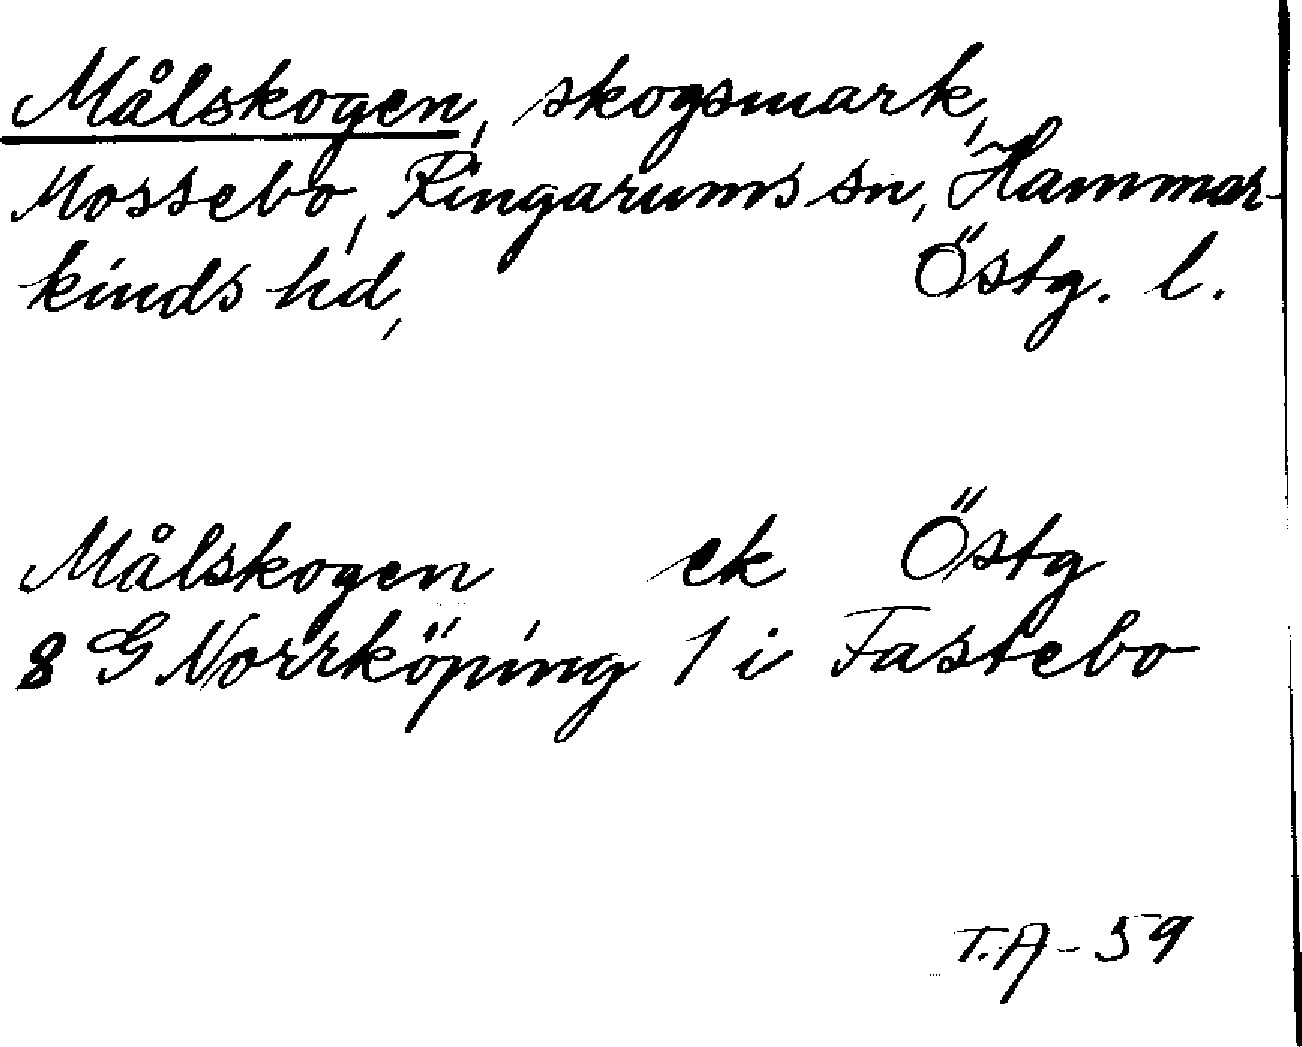 Målskogen, skogsmark,
Mossebo, Ringarums sn, Hammar-
kinds hd, Östg. l.
Målskogen ek Östg
8 G Norrköping 1 i Fastebo
T.A-59